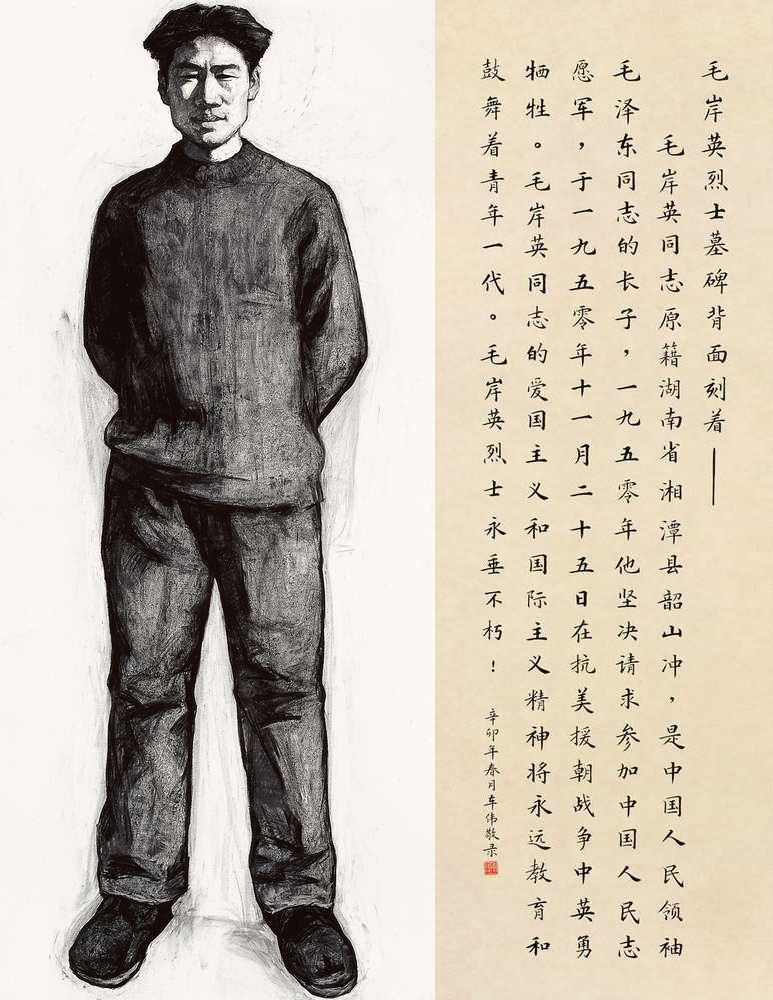 毛岸英烈士墓碑背面刻着——
毛岸英同志原籍湖南省湘潭县韶山冲，是中国人民领袖
毛泽东同志的长子，一九五零年他坚决请求参加中国人民志
愿军，于一九五零年十一月二十五日在抗美援朝战争中英勇
牺牲。毛岸英同志的爱国主义和国际主义精神将永远教育和
鼓舞着青年一代。毛岸英烈士永垂不朽！
辛卯年春月车伟敬录